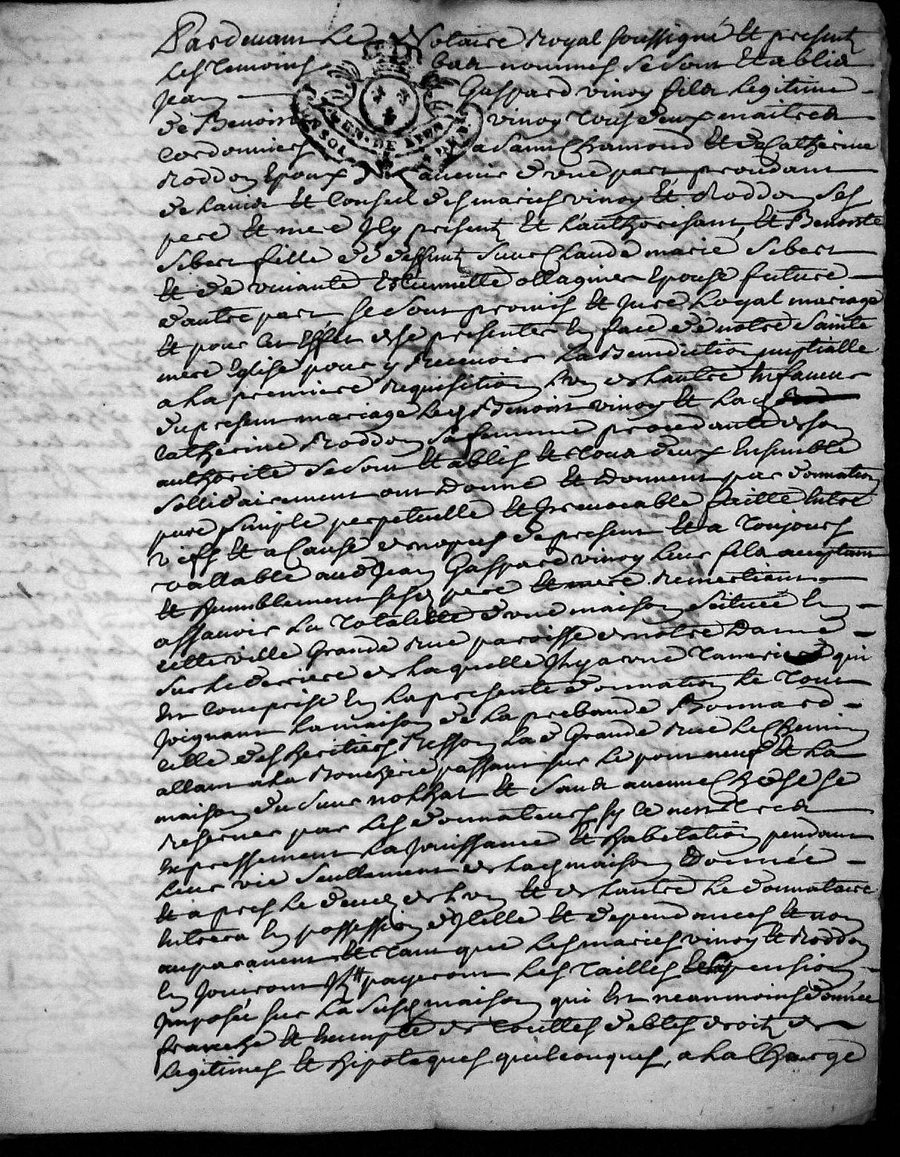 Pardevant Le Notaire Royal soussigné Et présents
Les Temoins bas nommés se sont Etablis
Jean Gaspard vinoy fils Legitime
de Benoist vinoy tous deux maitres
Cordonniers a Saint Chamond Et de Catherine
Roddon Epoux avenir d'une part procedant
de Lavis Et Conseil desd mariés vinoy Et Roddon Ses
pere Et mere Icy presents Et L'authorisant Et Benoiste
Sibert fille de deffunt Sieur Claude marie Sibert
Et de vivante Estiennette ollagnier Epouse future
d'autre part Se sont promis Et Juré Loyal mariage
Et pour Cet Effet de se presenter En face de notre Sainte
mere Eglise pour y Recevoir La Benediction nuptialle
a La premiere Requisition L'un de Lautre En faveur
du present mariage Led Benoist vinoy Et La
Catherine Roddon Sa femme procedante de son
authorité Se sont Etablis Et tous deux Ensemble
Sollidairement ont Donné Et Donnent par donnation
pure simple perpetuelle Et Irrevocable faitte Entre
vifs Et a Cause de nopces de present Et a Toujours
vallable aud Jean Gaspard vinoy Leur fils acceptant
Et humblement Sesd pere Et mere Remerciant
assavoir La Totalitté d'une maison Scituée En
cette ville Grande Rue paroisse de notre Dame
Sur Le derriere de Laquelle Il y a une qui
Est Comprise En La presente donnation Le Tout
Joignant La maison de La prebande Bonnard
celle des heritiers Resson Lad Grande Rue Le Chemin
allant a La Boucherie passant sur Le pont neuf Et La
maison du Sieur Et Sauf
Reservé par Lesd donnateurs
Expressement La Jouissance Et habitation pendant
Leur vie Seullement de Lad maison Donnée
Et apres Le deces de L'un Et de Lautre Le donnataire
Entrera En possession d'Icelle Et dependances Et non
auparavant Et Tant que Lesd mariés vinoy Et Roddon
En Jouiront Ils payeront Les Tailles pension
Imposée sur La Susd maison qui Est neanmoins donnée
franche Et Exempte de Touttes debtes droits de
Legitimes Et hipoteques quelconques, a La Charge